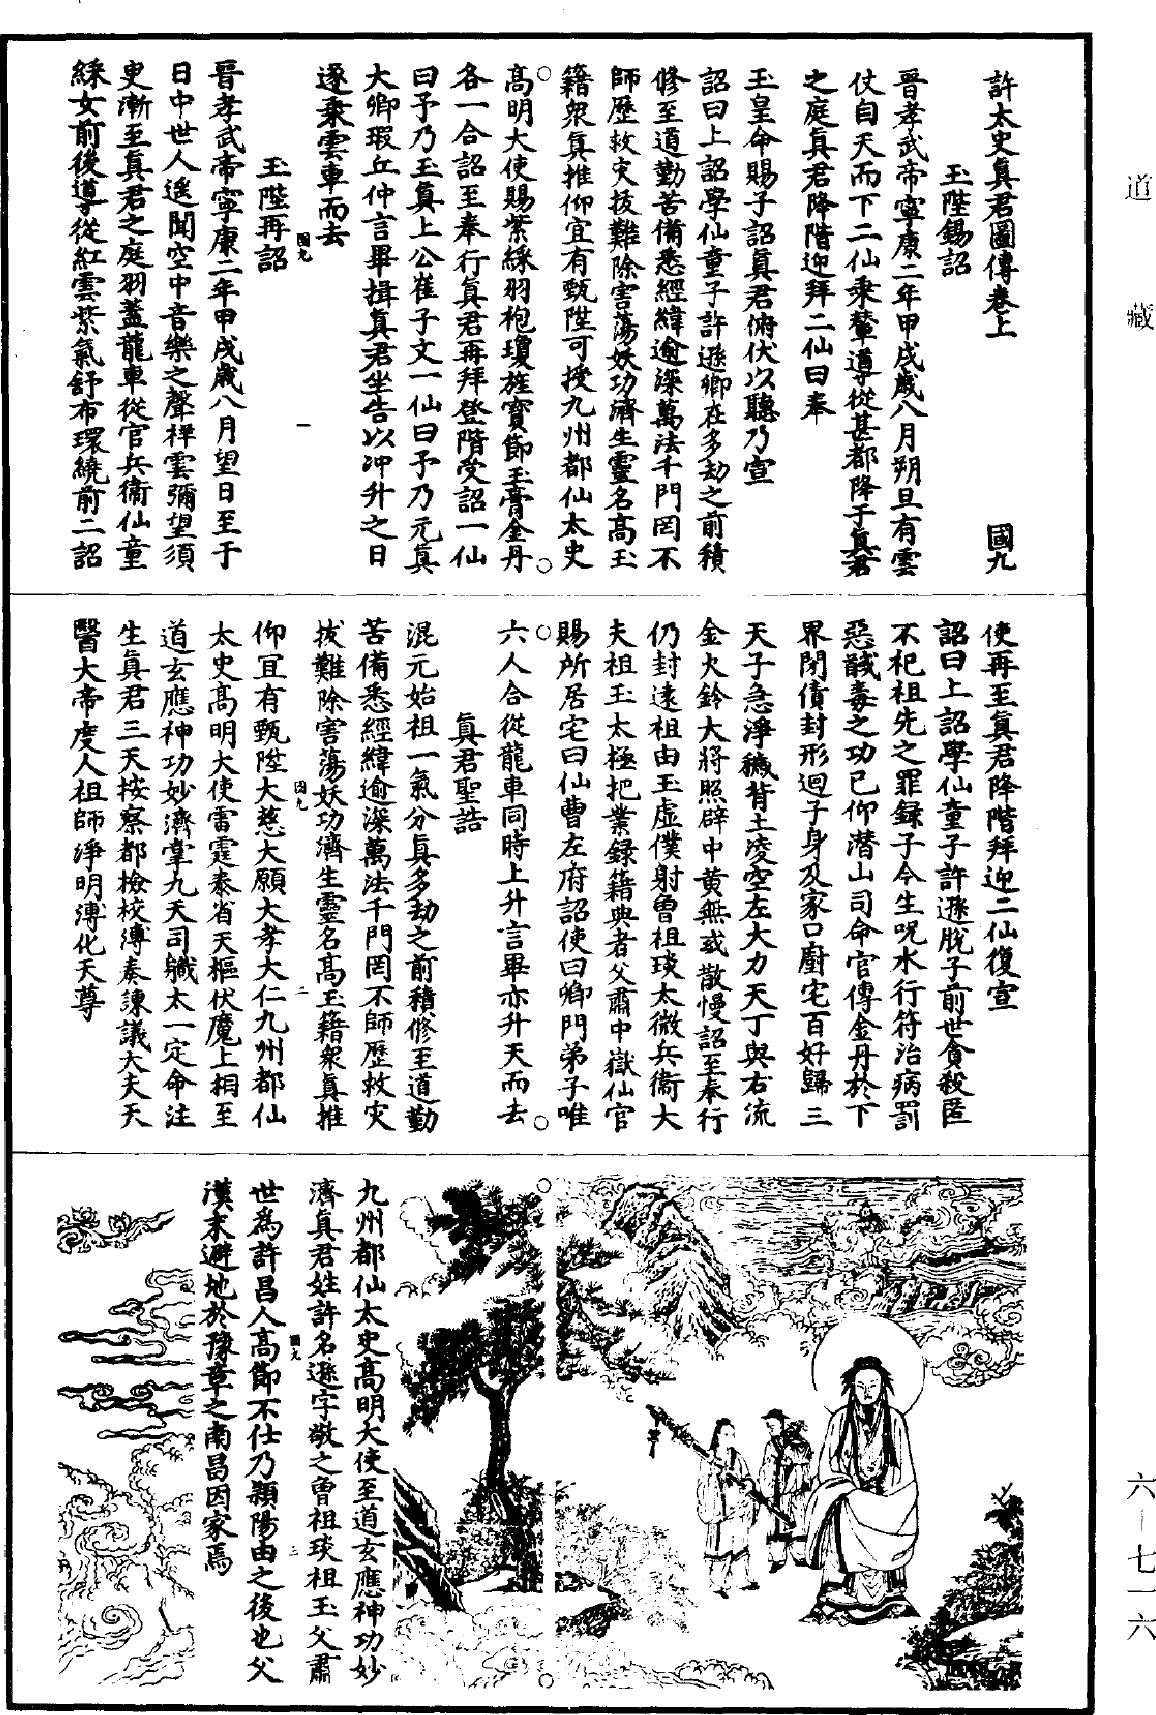 道藏
許太史真君圖傳卷上　國九
玉陛錫詔
晉孝武帝寧康二年甲戌歲八月朔旦有雲
仗自天而下二仙乘輦導從甚都降于真君
之庭真君降階迎拜二仙曰奉
玉皇命賜子詔真君俯伏以聽乃宣
詔曰上詔學仙童子許遜卿在多劫之前積
修至道勤苦備悉經緯逾深萬法千門罔不
師歷救灾拔難除害蕩妖功濟生靈名高玉
籍眾真推仰宜有甄陞可授九州都仙太史
高明大使賜紫綵羽袍瓊旌寶節玉膏金丹
各一合詔至奉行真君再拜登階受詔一仙
曰予乃玉真上公崔子文一仙曰予乃元真
大卿瑕丘仲言畢揖真君坐告以冲升之日
遂乘雲車而去
國九　一
玉陛再詔
晉孝武帝寧康二年甲戌歲八月望日至于
日中世人遙聞空中音樂之聲祥雲彌望須
史漸至真君之庭羽蓋龍車從官兵衛仙童
綵女前後導從紅雲紫氣舒布環繞前二詔
使再至真君降階拜迎二仙復宣
詔曰上詔學仙童子許遜脫子前世貪殺匿
不祀祖先之罪録子今生呪水行符治病罰
惡馘毒之功已仰潛山司命官傳金丹於下
界閉債封形迴子身及家口廚宅百好歸三
天子急淨穢背土凌空左大力天丁與右流
金火鈴大將照辟中黄無或散慢詔至奉行
仍封遠祖由玉虛僕射曾祖琰太微兵衞大
夫祖玉太極把業録籍典者父肅中嶽仙官
賜所居宅曰仙曹左府詔使曰卿門弟子唯
六人合從龍車同時上升言畢亦升天而去
真君聖誥
混元始祖一氣分真多劫之前積修至道勤
苦備悉經緯逾深萬法千門罔不師歷救灾
拔難除害蕩妖功濟生靈名高玉籍眾真推
國九　二
仰宜有甄陞大慈大願大孝大仁九州都仙
太史高明大使雷霆泰省天樞伏魔上相至
道玄應神功妙濟掌九天司職太一定命注
生真君三天按察都檢校溥奏諫議大夫天
醫大帝度人祖師淨明溥化天尊
九州都仙太史高明大使至道玄應神功妙
濟真君姓許名遜字敬之曾祖琰祖玉父肅
國九　三
世為許昌人高節不仕乃潁陽由之後也父
漢末避地於豫章之南昌因家焉
六—七一六